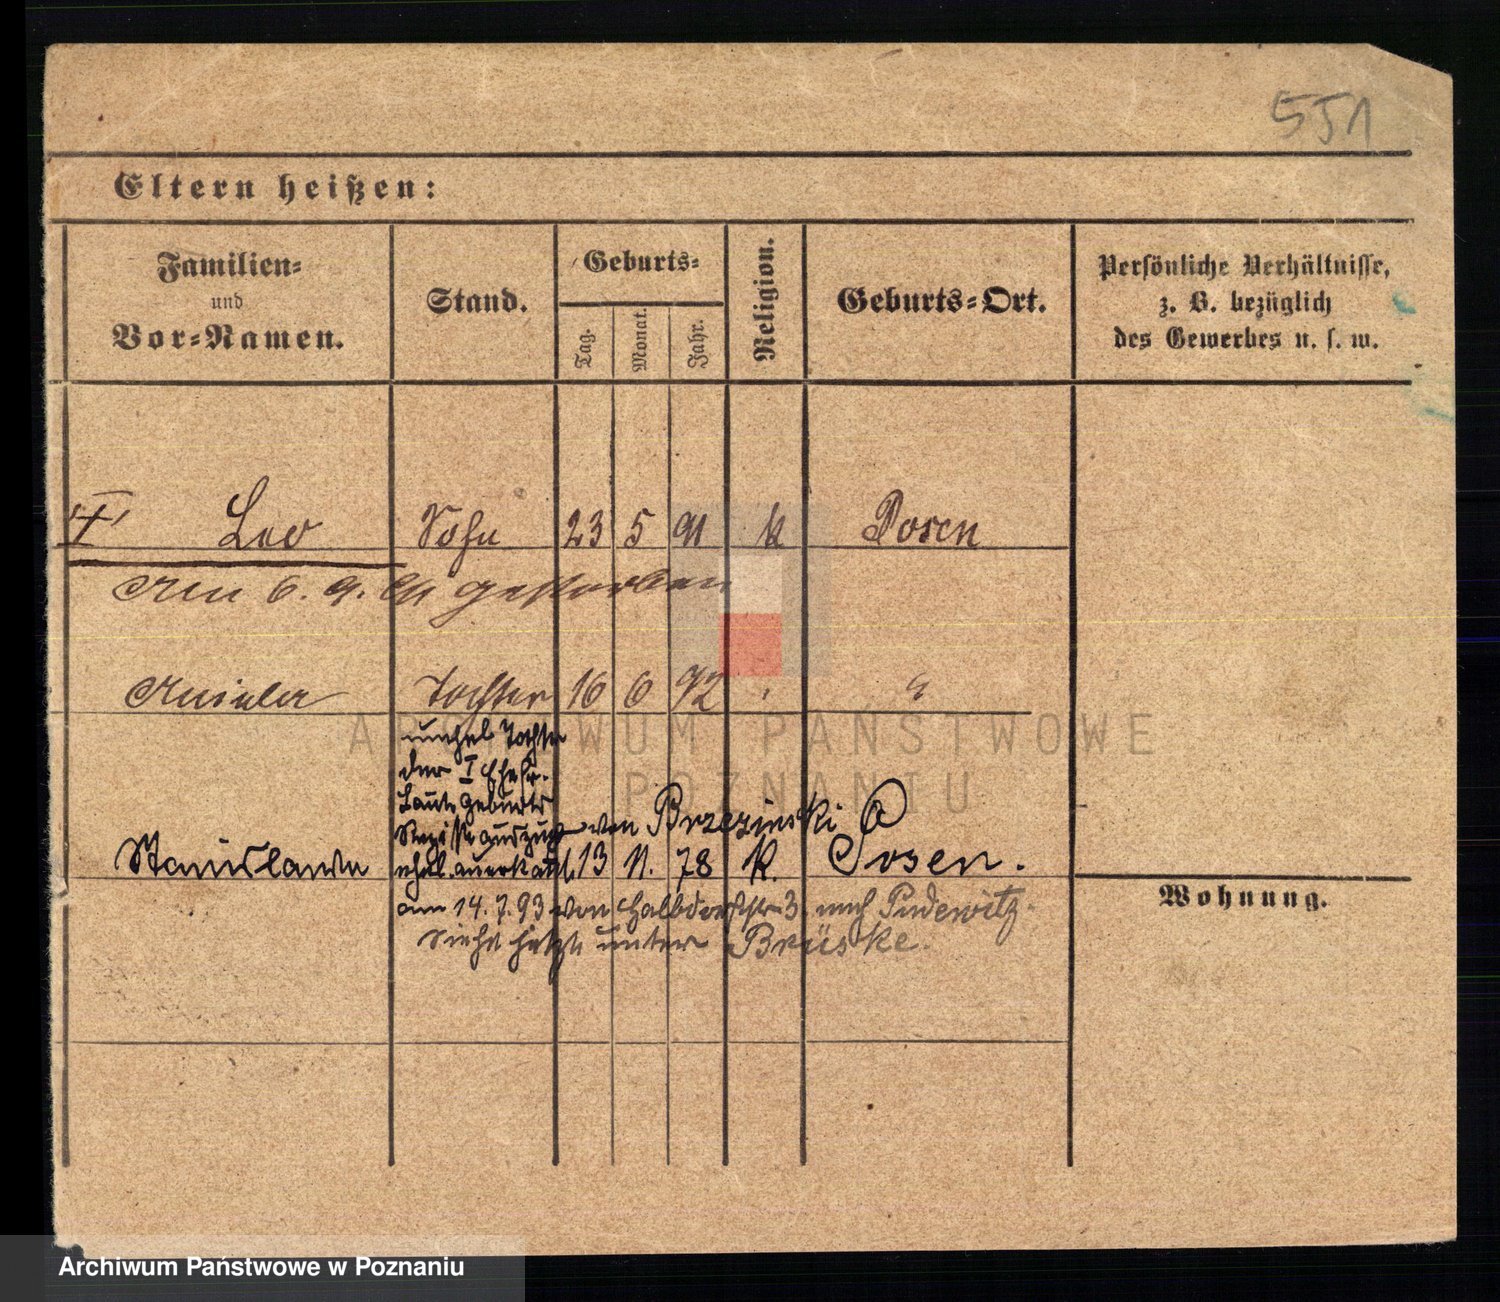 551
Eltern heißen:
Familien-
und
Vor-Namen.
Stand.
Geburts-
Tag.
Monat.
Jahr.
Religion.
Geburts-Ort.
Persönliche Verhältnisse,
z. B. bezüglich
des Gewerbes u. s. w.
Leo Sohn 23 5 91 k Posen
6. 9. 91 gestorben
Tochter 16 6 92
unehel Tochter
der I Ehefr.
Laut Geburts
Regist auszug von Brzezinski
Stanislawa ehel. anerkannt. 13 11. 78 K. Posen.
am 14. 7. 93 von Halbdorfstr 3. nach Pudewitz.
Siehe jetzt unter Brüske.
Wohnung.
ARCHIWUM PAŃSTWOWE
W POZNANIU
Archiwum Państwowe w Poznaniu